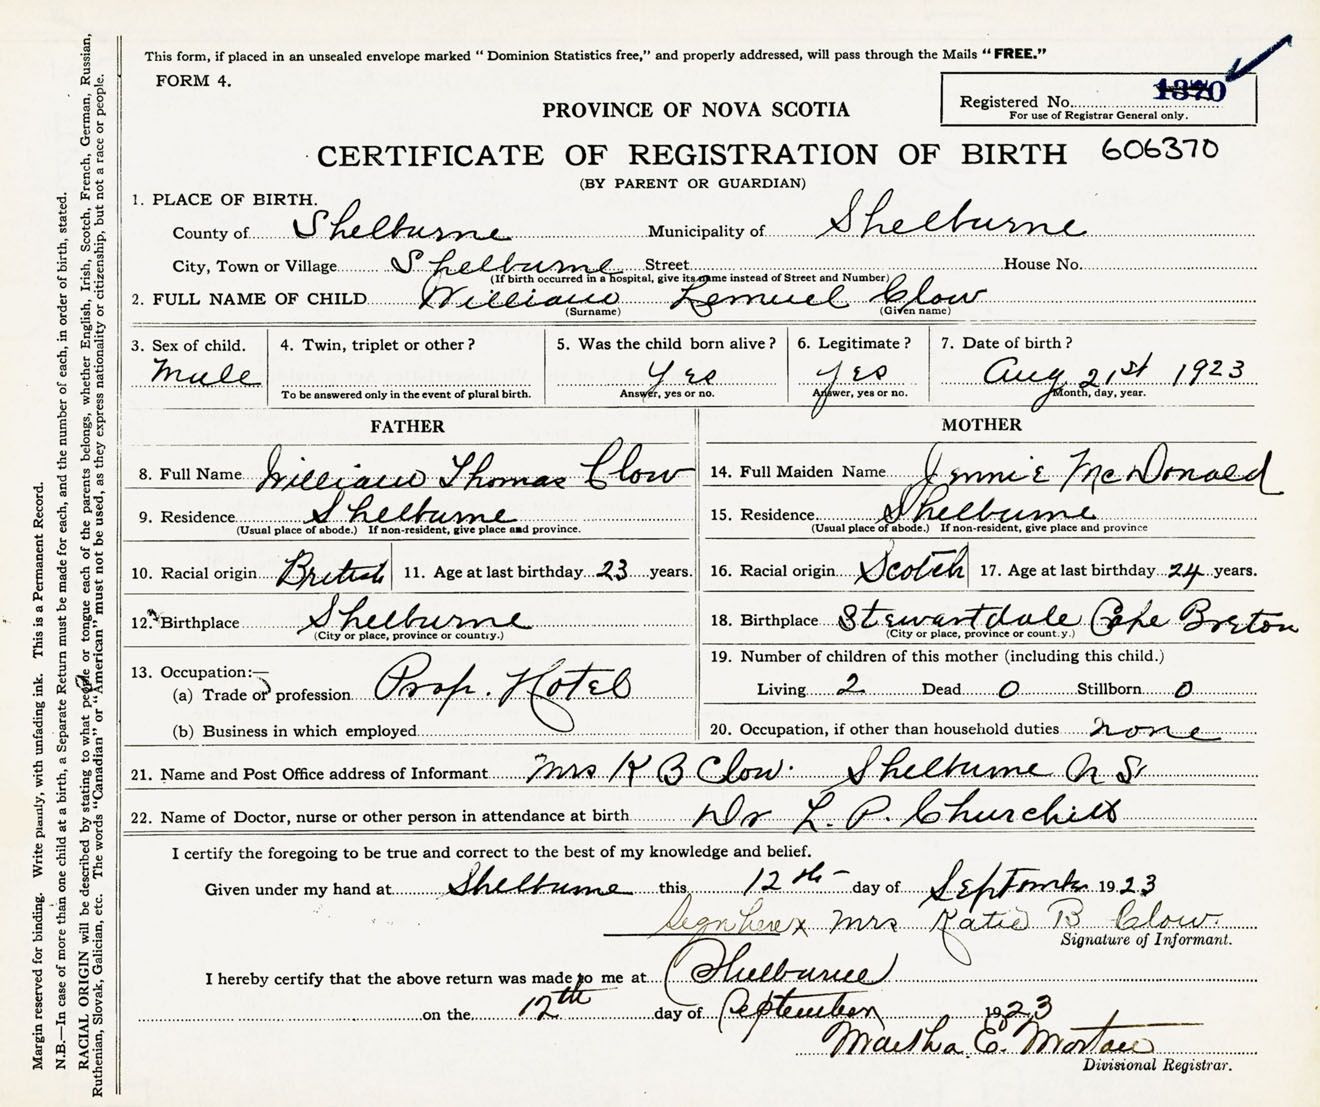 This form, if placed in an unsealed envelope marked “ Dominion Statistics free,” and properly addressed, will pass through the Mails “ FREE.”
FORM 4.
Registered No. 1370
For use of Registrar General only.
PROVINCE OF NOVA SCOTIA
CERTIFICATE OF REGISTRATION OF BIRTH 606370
(BY PARENT OR GUARDIAN)
1. PLACE OF BIRTH.
County of Shelburne Municipality of Shelburne
City, Town or Village Shelburne Street House No.
(If birth occurred in a hospital, give its name instead of Street and Number)
2. FULL NAME OF CHILD William Lemuel Clow
(Surname) (Given name)
3. Sex of child. 4. Twin, triplet or other ? 5. Was the child born alive ? 6. Legitimate ? 7. Date of birth ?
Male Yes Yes Aug 21st 1923
To be answered only in the event of plural birth. Answer, yes or no. Answer, yes or no. Month, day, year.
FATHER
8. Full Name William Thomas Clow
9. Residence Shelburne
(Usual place of abode.) If non-resident, give place and province.
10. Racial origin British 11. Age at last birthday 23 years.
12. Birthplace Shelburne
(City or place, province or country.)
13. Occupation:—
(a) Trade or profession Prop. Hotel
(b) Business in which employed
MOTHER
14. Full Maiden Name Jennie McDonald
15. Residence Shelburne
(Usual place of abode.) If non-resident, give place and province
16. Racial origin Scotch 17. Age at last birthday 24 years.
18. Birthplace Stewartdale Cape Breton
(City or place, province or count.y.)
19. Number of children of this mother (including this child.)
Living 2 Dead 0 Stillborn 0
20. Occupation, if other than household duties none
21. Name and Post Office address of Informant Mrs K B Clow. Shelburne N S.
22. Name of Doctor, nurse or other person in attendance at birth Dr L. P. Churchill
I certify the foregoing to be true and correct to the best of my knowledge and belief.
Given under my hand at Shelburne this 12th day of September 1923
Sign here x Mrs Katie B Clow.
Signature of Informant.
I hereby certify that the above return was made to me at Shelburne
on the 12th day of September 1923
Martha E. Morton
Divisional Registrar.
Margin reserved for binding. Write plainly, with unfading ink. This is a Permanent Record.
N.B.—In case of more than one child at a birth, a Separate Return must be made for each, and the number of each, in order of birth, stated.
RACIAL ORIGIN will be described by stating to what people or tongue each of the parents belongs, whether English, Irish, Scotch, French, German, Russian,
Ruthenian, Slovak, Galician, etc. The words “Canadian” or “American” must not be used, as they express nationality or citizenship, but not a race or people.